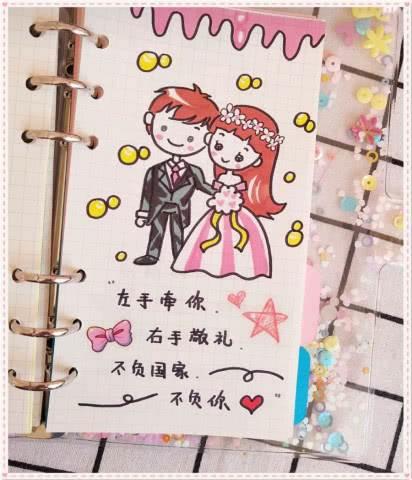 "左手牵你.
右手敬礼.
不负国家.
不负你"